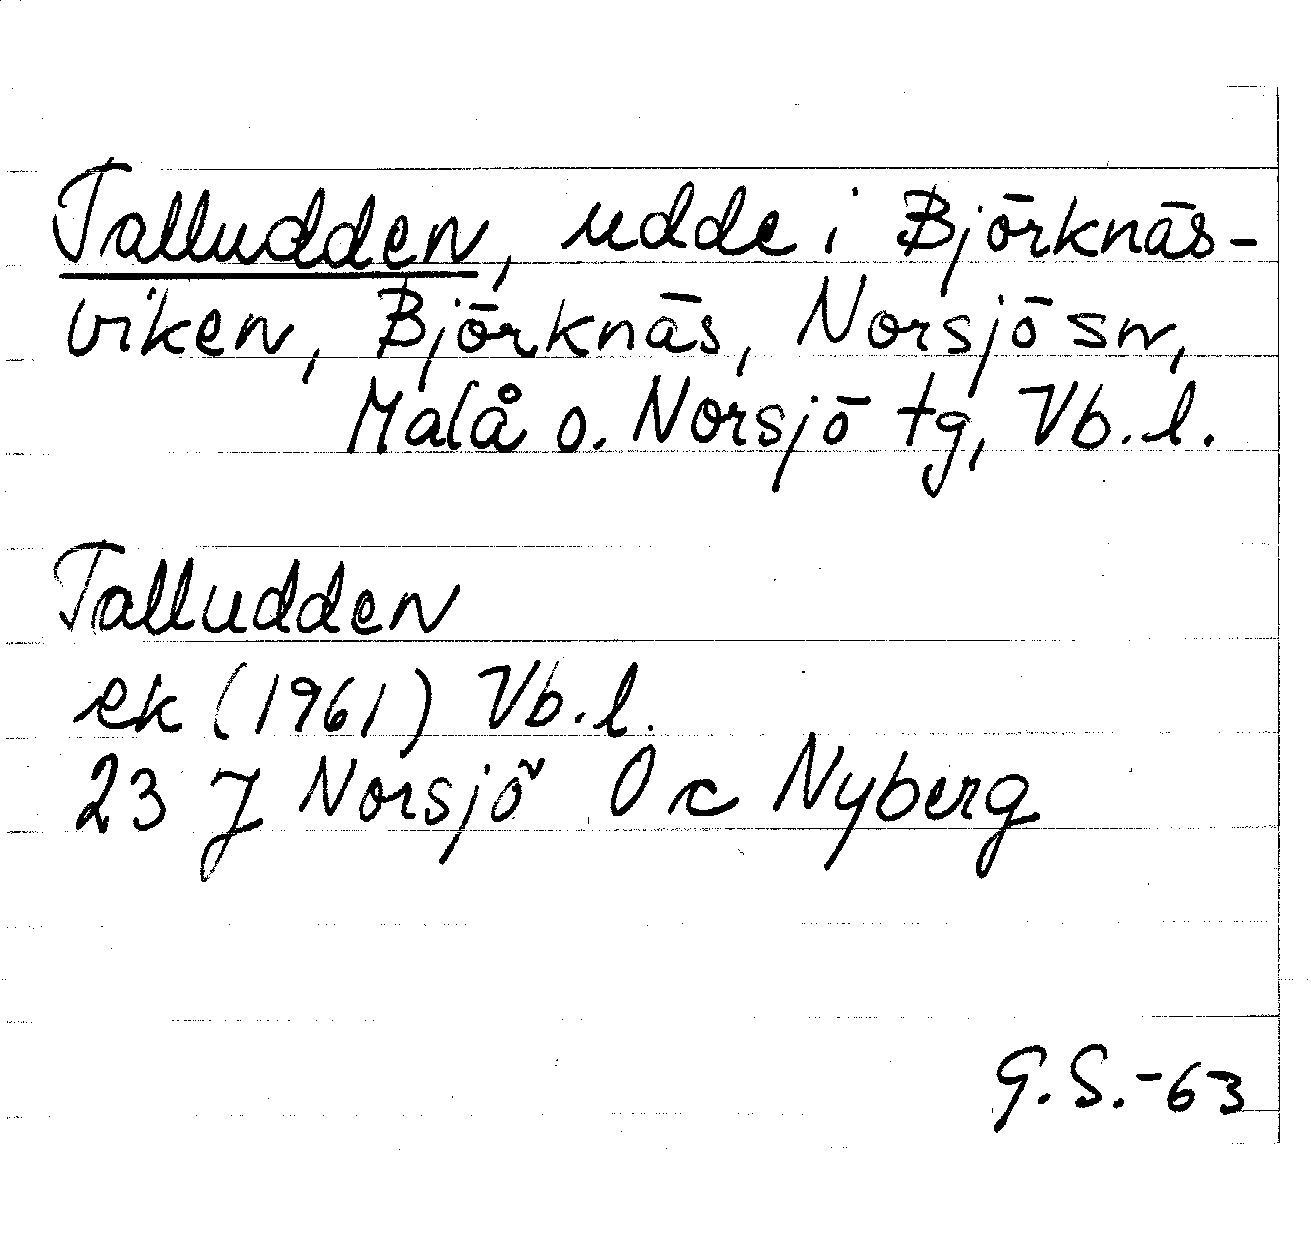 Talludden, udde i Björknäs-
viken, Björknäs, Norsjö sn,
Malå o. Norsjö tg, Vb. l.
Talludden
ek (1961) Vb. l.
23 J Norsjö O c Nyberg
G. S. -63